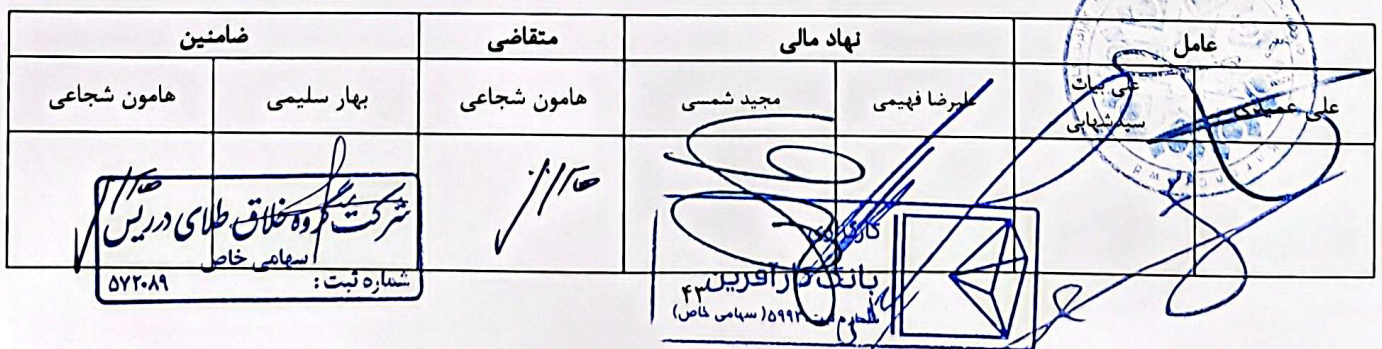 عامل نهاد مالی متقاضی ضامنین
علی عمیدی علی بیات سید شهابی علیرضا فهیمی مجید شمسی هامون شجاعی بهار سلیمی هامون شجاعی
شرکت گروه خلاق طلای درریس
سهامی خاص
شماره ثبت: ۵۷۲۰۸۹
کارگزاری
بانک کارآفرین
(سهامی خاص)